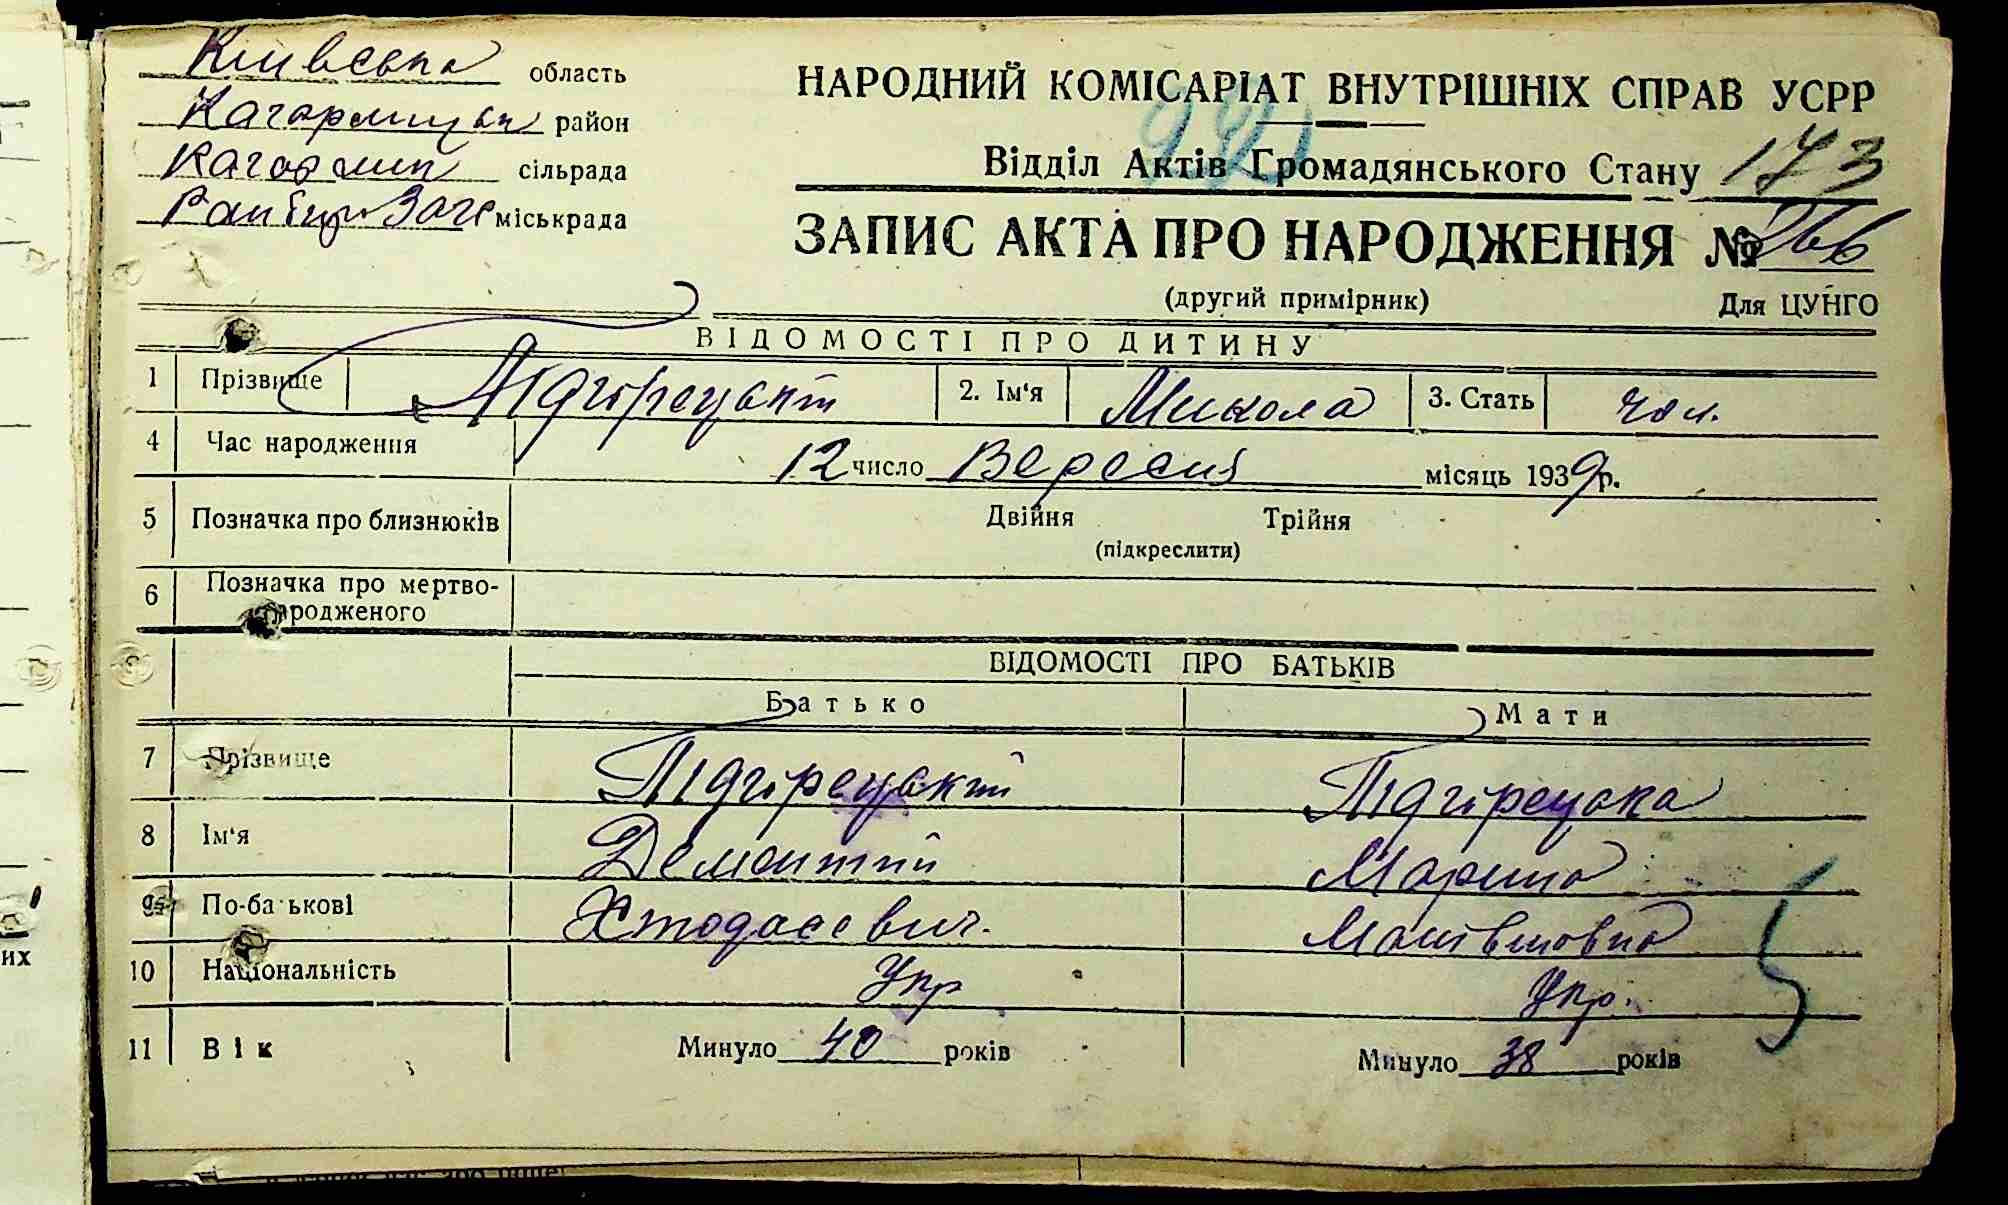 Київська область
Кагарлицьк район
Кагарлик сільрада
міськрада
НАРОДНИЙ КОМІСАРІАТ ВНУТРІШНІХ СПРАВ УСРР
Відділ Актів Громадянського Стану 173
ЗАПИС АКТА ПРО НАРОДЖЕННЯ №
(другий примірник) Для ЦУНГО
ВІДОМОСТІ ПРО ДИТИНУ
1 Прізвище Підгірецький 2. Ім'я Микола 3. Стать чол.
4 Час народження 12 число Вересня місяць 1939 р.
5 Позначка про близнюків Двійня Трійня
(підкреслити)
6 Позначка про мертво-
народженого
ВІДОМОСТІ ПРО БАТЬКІВ
Батько Мати
7 Прізвище Підгірецький Підгірецька
8 Ім'я Дементий Марина
9 По-батькові Матвіївна
10 Національність Укр Укр.
11 Вік Минуло 40 років Минуло 38 років
их